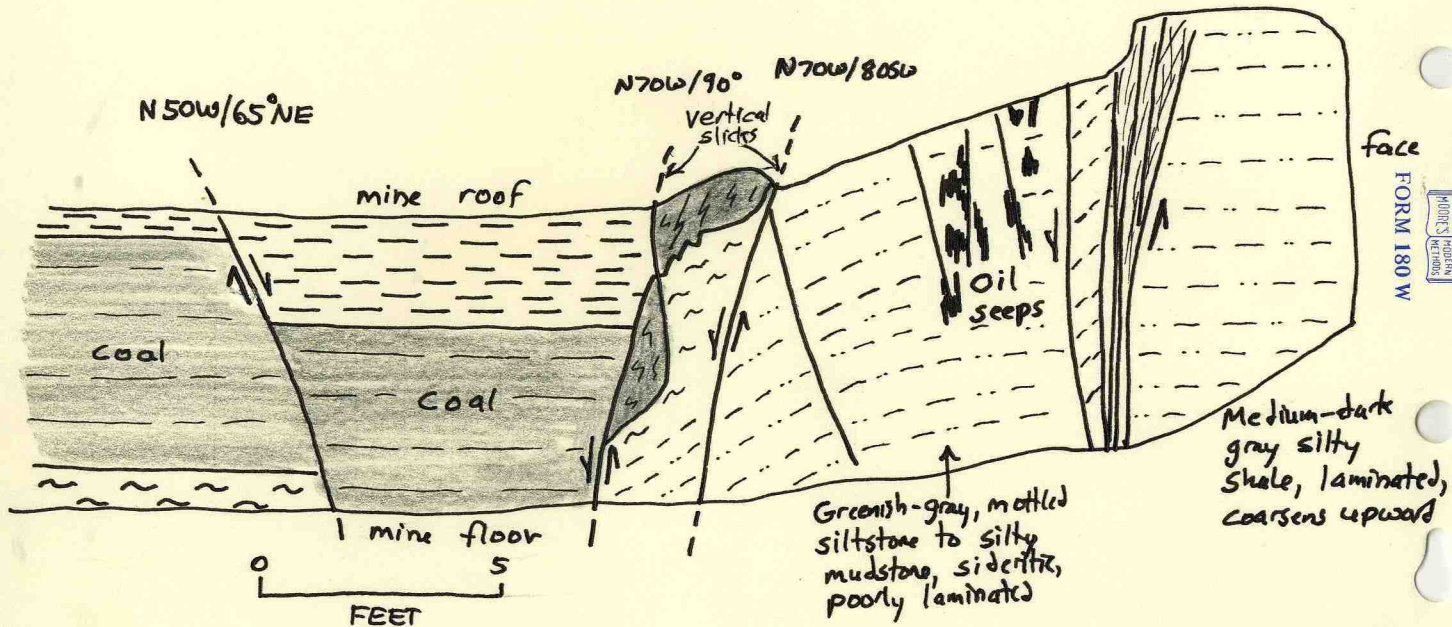 N50W/65°NE
N70W/90°
N70W/80SW
vertical
slicks
mine roof
face
coal
coal
Oil
seeps
mine floor
0 5
FEET
Greenish-gray, mottled
siltstone to silty
mudstone, sideritic,
poorly laminated
Medium-dark
gray silty
shale, laminated,
coarsens upward
MOORE'S MODERN
METHODS
FORM 180 W